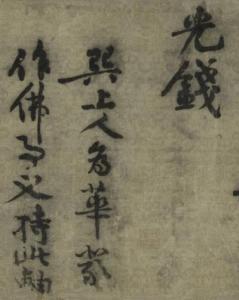 光錢
巽上人為華嚴
作佛事又持此軸